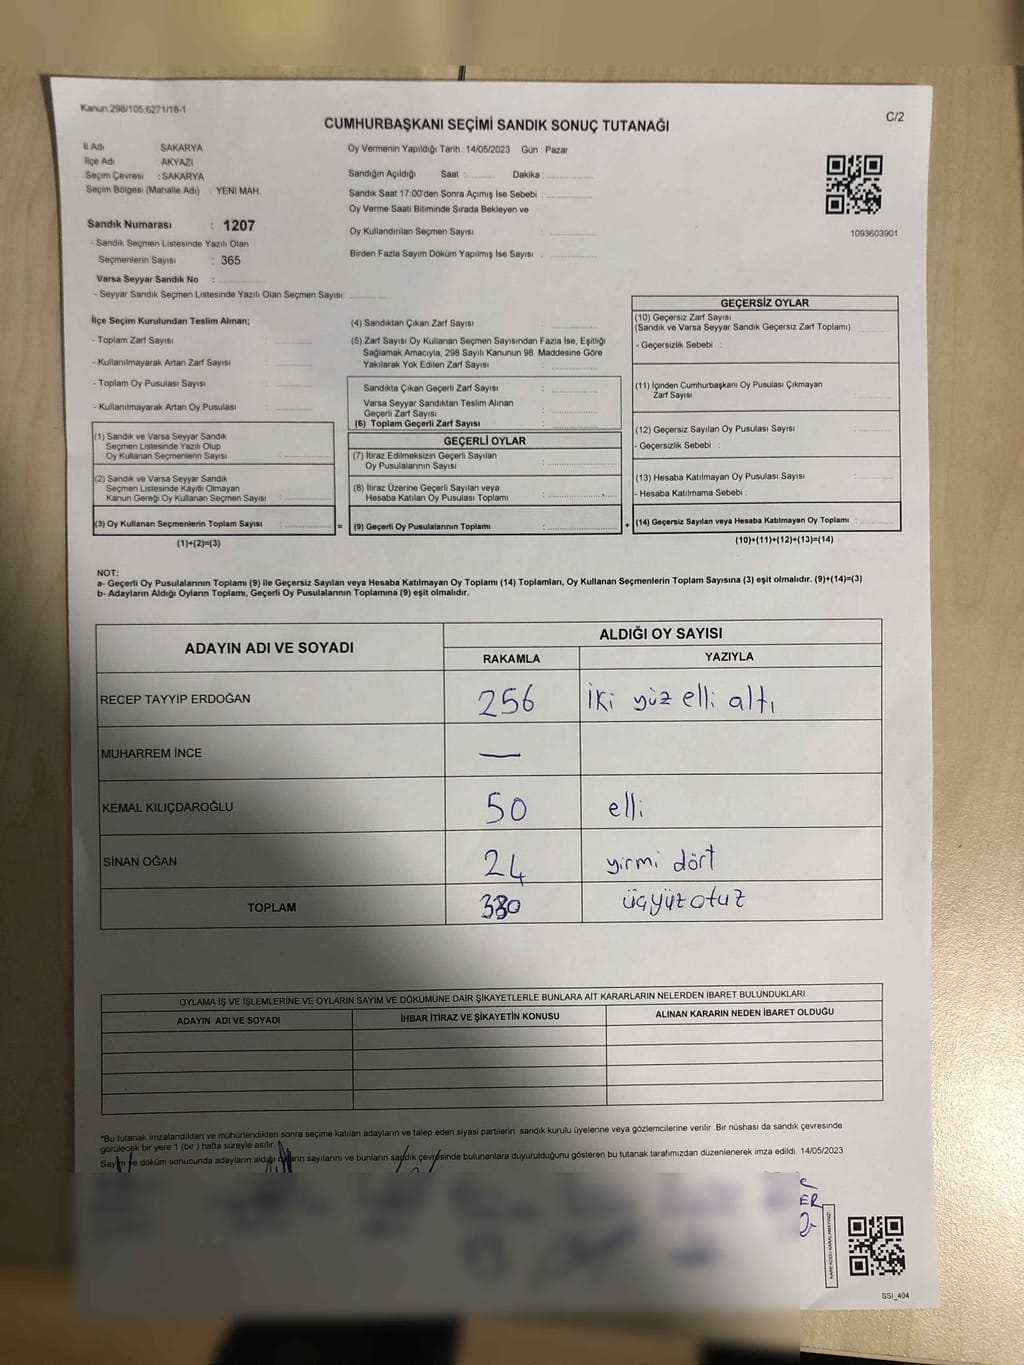 Kanun:298/105,6271/18-1
C/2
CUMHURBAŞKANI SEÇİMİ SANDIK SONUÇ TUTANAĞI
İl Adı SAKARYA
İlçe Adı AKYAZI
Seçim Çevresi : SAKARYA
Seçim Bölgesi (Mahalle Adı) : YENİ MAH.
Sandık Numarası : 1207
- Sandık Seçmen Listesinde Yazılı Olan
Seçmenlerin Sayısı : 365
Varsa Seyyar Sandık No :
- Seyyar Sandık Seçmen Listesinde Yazılı Olan Seçmen Sayısı:
Oy Vermenin Yapıldığı Tarih :14/05/2023 Gün : Pazar
Sandığın Açıldığı Saat : Dakika :
Sandık Saat 17:00'den Sonra Açımış İse Sebebi :
Oy Verme Saati Bitiminde Sırada Bekleyen ve
Oy Kullandırılan Seçmen Sayısı :
Birden Fazla Sayım Döküm Yapılmış İse Sayısı :
1093603901
İlçe Seçim Kurulundan Teslim Alınan;
- Toplam Zarf Sayısı :
- Kullanılmayarak Artan Zarf Sayısı :
- Toplam Oy Pusulası Sayısı :
- Kullanılmayarak Artan Oy Pusulası :
(1) Sandık ve Varsa Seyyar Sandık
Seçmen Listesinde Yazılı Olup
Oy Kullanan Seçmenlerin Sayısı :
(2) Sandık ve Varsa Seyyar Sandık
Seçmen Listesinde Kayıtlı Olmayan
Kanun Gereği Oy Kullanan Seçmen Sayısı :
(3) Oy Kullanan Seçmenlerin Toplam Sayısı :
(1)+(2)=(3)
=
(4) Sandıktan Çıkan Zarf Sayısı :
(5) Zarf Sayısı Oy Kullanan Seçmen Sayısından Fazla İse, Eşitliği
Sağlamak Amacıyla, 298 Sayılı Kanunun 98. Maddesine Göre
Yakılarak Yok Edilen Zarf Sayısı :
Sandıkta Çıkan Geçerli Zarf Sayısı :
Varsa Seyyar Sandıktan Teslim Alınan
Geçerli Zarf Sayısı :
(6) Toplam Geçerli Zarf Sayısı :
GEÇERLİ OYLAR
(7) İtiraz Edilmeksizin Geçerli Sayılan
Oy Pusulalarının Sayısı :
(8) İtiraz Üzerine Geçerli Sayılan veya
Hesaba Katılan Oy Pusulası Toplamı :
(9) Geçerli Oy Pusulalarının Toplamı :
+
GEÇERSİZ OYLAR
(10) Geçersiz Zarf Sayısı
(Sandık ve Varsa Seyyar Sandık Geçersiz Zarf Toplamı)
- Geçersizlik Sebebi :
(11) İçinden Cumhurbaşkanı Oy Pusulası Çıkmayan
Zarf Sayısı :
(12) Geçersiz Sayılan Oy Pusulası Sayısı :
- Geçersizlik Sebebi :
(13) Hesaba Katılmayan Oy Pusulası Sayısı :
- Hesaba Katılmama Sebebi :
(14) Geçersiz Sayılan veya Hesaba Katılmayan Oy Toplamı :
(10)+(11)+(12)+(13)=(14)
NOT:
a- Geçerli Oy Pusulalarının Toplamı (9) ile Geçersiz Sayılan veya Hesaba Katılmayan Oy Toplamı (14) Toplamları, Oy Kullanan Seçmenlerin Toplam Sayısına (3) eşit olmalıdır. (9)+(14)=(3)
b- Adayların Aldığı Oyların Toplamı, Geçerli Oy Pusulalarının Toplamına (9) eşit olmalıdır.
ADAYIN ADI VE SOYADI ALDIĞI OY SAYISI
RAKAMLA YAZIYLA
RECEP TAYYİP ERDOĞAN 256 İki yüz elli altı
MUHARREM İNCE —
KEMAL KILIÇDAROĞLU 50 elli
SİNAN OĞAN 24 yirmi dört
TOPLAM 330 üçyüz otuz
OYLAMA İŞ VE İŞLEMLERİNE VE OYLARIN SAYIM VE DÖKÜMÜNE DAİR ŞİKAYETLERLE BUNLARA AİT KARARLARIN NELERDEN İBARET BULUNDUKLARI
ADAYIN ADI VE SOYADI İHBAR İTİRAZ VE ŞİKAYETİN KONUSU ALINAN KARARIN NEDEN İBARET OLDUĞU
*Bu tutanak imzalandıktan ve mühürlendikten sonra seçime katılan adayların ve talep eden siyasi partilerin sandık kurulu üyelerine veya gözlemcilerine verilir .Bir nüshası da sandık çevresinde
görülecek bir yere 1 (bir ) hafta süreyle asılır.
Sayım ve döküm sonucunda adayların aldığı oyların sayılarını ve bunların sandık çevresinde bulunanlara duyurulduğunu gösteren bu tutanak tarafımızdan düzenlenerek imza edildi. 14/05/2023
ER
KARE KODU KARALAMAYINIZ!
SSI_404